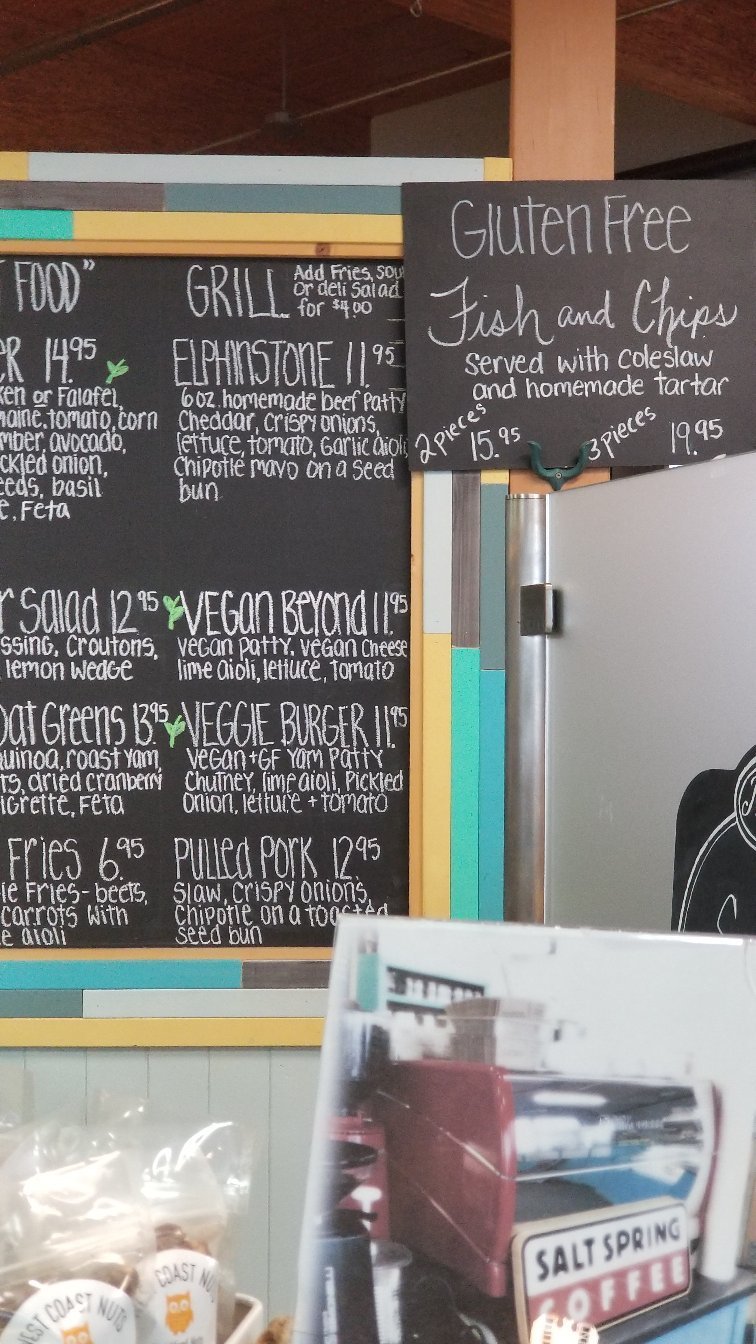 FOOD"
14.95
ken or Falafel,
maine, tomato, corn
mber, avocado,
ckled onion,
eeds, basil
e, Feta
r Salad 12.95
ssing, croutons,
lemon wedge
oat Greens 13.95
quinoa, roast yam,
ts, dried cranberry
igrette, Feta
Fries 6.95
ie Fries - beets,
carrots with
e aioli
GRILL Add Fries, Sou
Or deli Salad
for $4.00
ELPHINSTONE 11.95
6 oz. homemade beef Patty
Cheddar, crispy onions,
lettuce, tomato, Garlic aioli
Chipotle mayo on a Seed
bun
VEGAN Beyond 11.95
vegan patty, vegan cheese
lime aioli, lettuce, tomato
VEGGIE BURGER 11.95
Vegan + GF Yam Patty
Chutney, lime aioli, Pickled
Onion, lettuce + tomato
PULLED PORK 12.95
Slaw, Crispy onions,
Chipotle on a toasted
seed bun
Gluten Free
Fish and Chips
Served with coleslaw
and homemade tartar
2 pieces 15.95 3 pieces 19.95
SALT SPRING
COFFEE
COAST NUTS
COAST NU